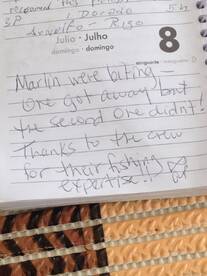 1 Dorado
Julio • Julho
domingo • domingo
8
Marlin were biting -
One got away but
the second one didn't!
Thanks to the crew
for their fishing
expertise!!